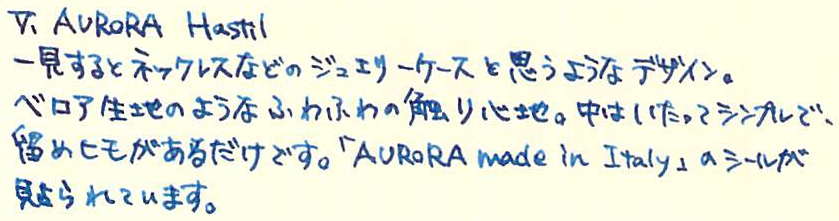 V. AURORA Hastil
一見するとネックレスなどのジュエリーケースと思うようなデザイン。
ベロア生地のようなふわふわの触り心地。中はいたってシンプルで、
留めヒモがあるだけです。「AURORA made in Italy」のシールが
貼られています。